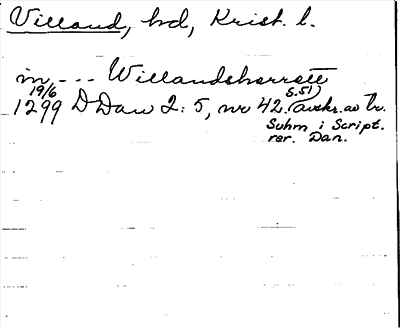 Villand, hd, Krist. l.
in, - - - Willandsherrett
19/6 s. 51)
1299 DDan 2: 5, nr 42. (avskr. av br.
Suhm i Script.
rer. Dan.